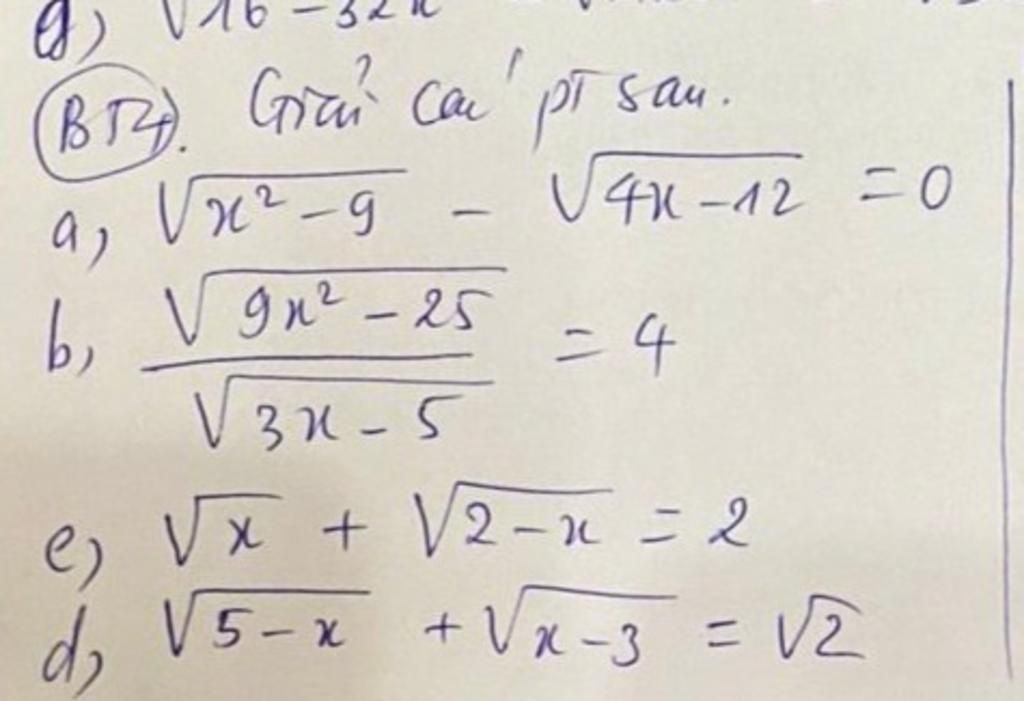 g) √16 - 32x
BT4. Giải các pt sau.
a, √x² - 9 - √4x - 12 = 0
b, √9x² - 25 / √3x - 5 = 4
c, √x + √2 - x = 2
d, √5 - x + √x - 3 = √2